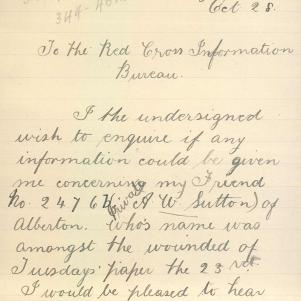 Oct 28.
To the Red Cross Information
Bureau.
I the undersigned
wish to enquire if any
information could be given
me concerning my Friend
Private
No. 2476 (A W Sutton) of
Alberton. Who's name was
amongst the wounded of
Tuesdays' paper the 23rd.
I would be pleased to hear